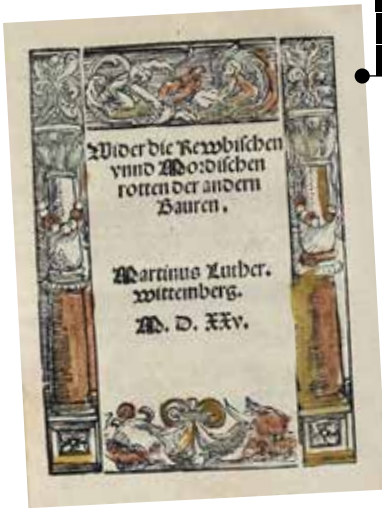 Wider die Rewbischen
vnnd Mordischen
rotten der andern
Bauren.
Martinus Luther.
wittemberg.
M. D. XXv.